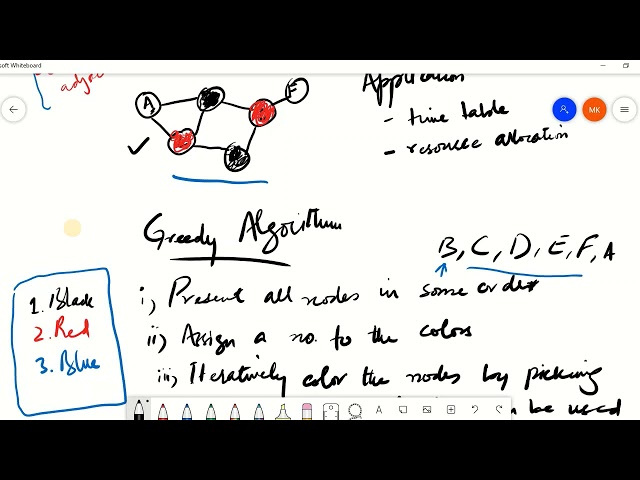 soft Whiteboard
adja
Application
A
F
- time table
- resource allocation
MK
Greedy Algorithm
B, C, D, E, F, A
i) Present all nodes in some order
ii) Assign a no. to the colors
iii) Iteratively color the nodes by picking
n be used
1. Black
2. Red
3. Blue